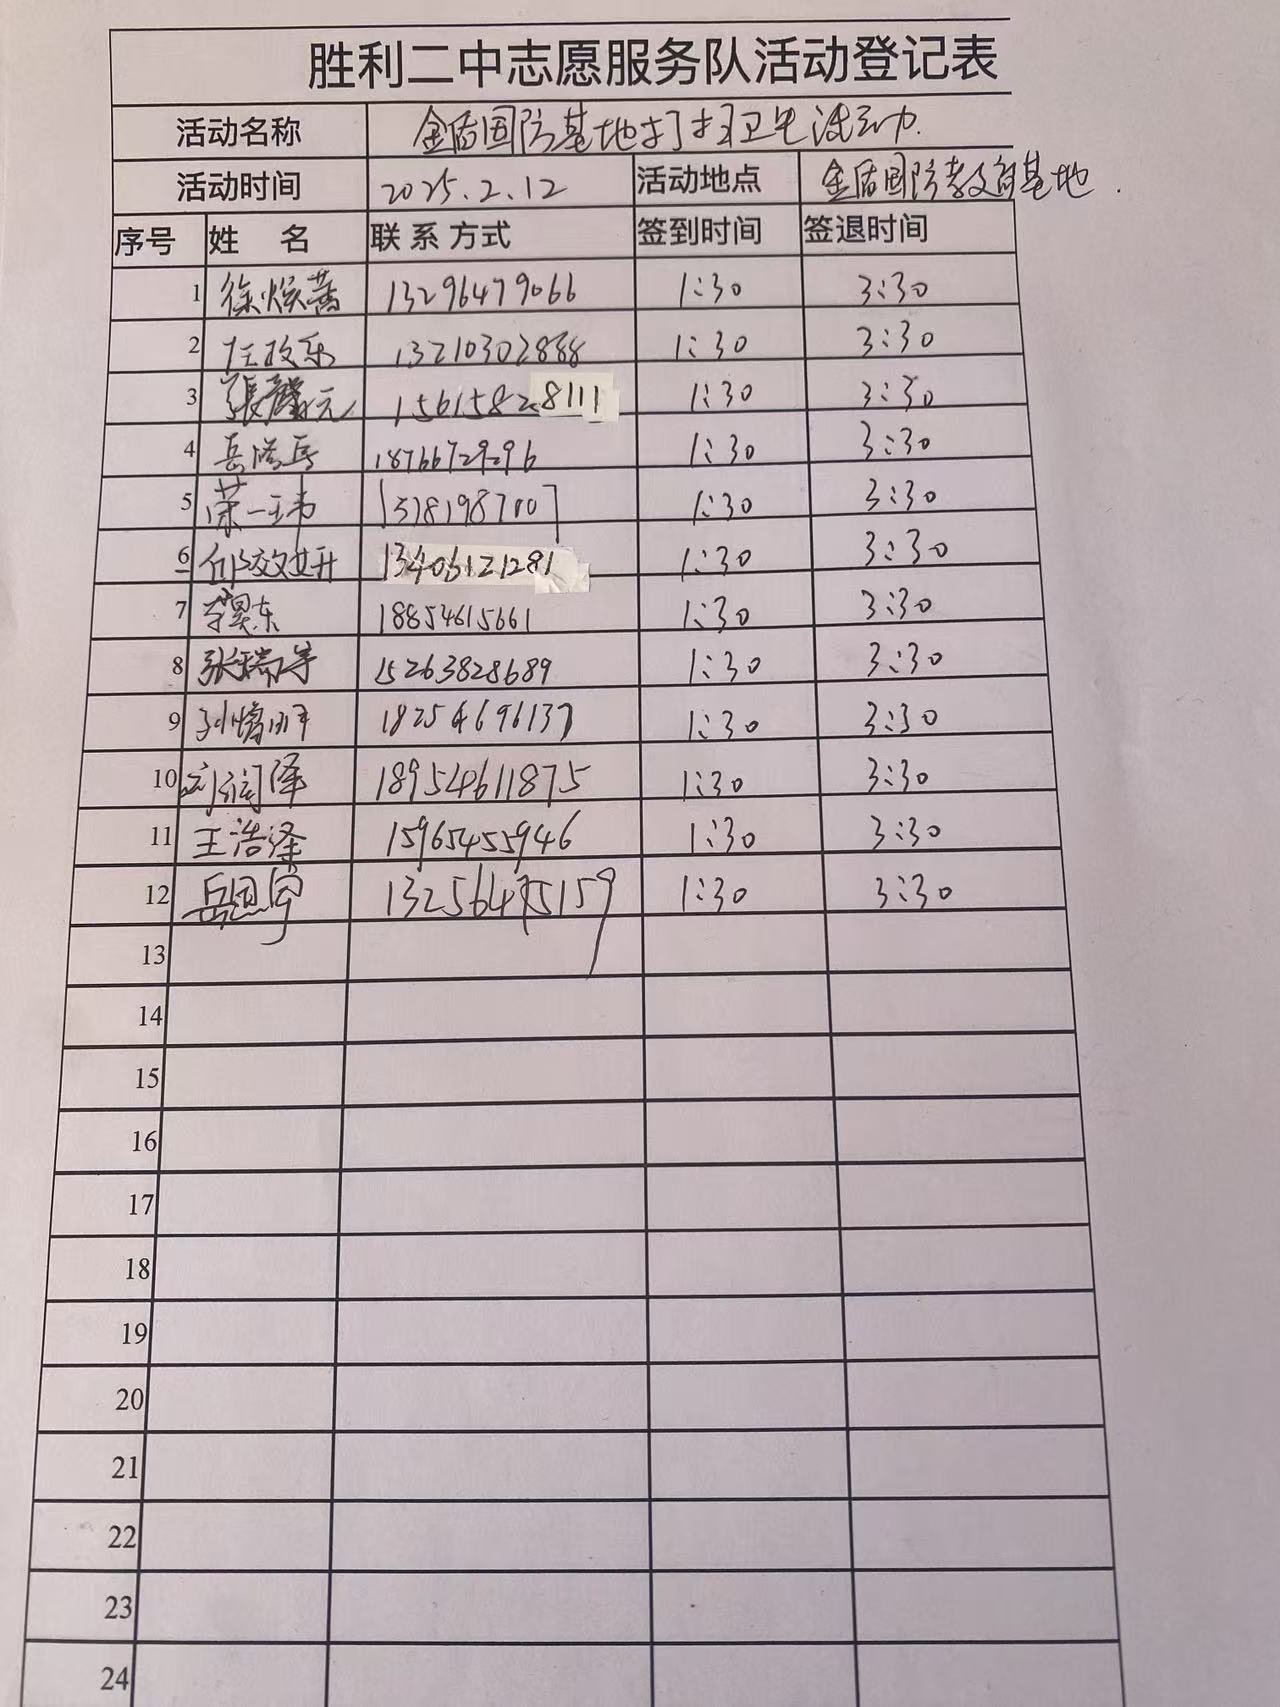 胜利二中志愿服务队活动登记表
活动名称 金盾国防基地打扫卫生活动.
活动时间 2025.2.12 活动地点 金盾国防教育基地.
序号 姓 名 联系方式 签到时间 签退时间
1 13296479066 1:30 3:30
2 13210302888 1:30 3:30
3 张馨元 15615828111 1:30 3:30
4 18766729296 1:30 3:30
5 荣一玮 1:30 3:30
6 邱效妍 13406121281 1:30 3:30
7 李昊东 18854615661 1:30 3:30
8 张瑞宇 15263828689 1:30 3:30
9 18254696137 1:30 3:30
10 刘润泽 18954611875 1:30 3:30
11 王浩泽 15965455946 1:30 3:30
12 岳思宇 13256475159 1:30 3:30
13
14
15
16
17
18
19
20
21
22
23
24